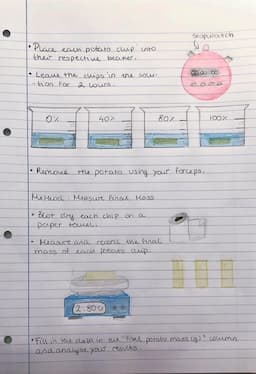 stopwatch
• Place each potato chip into
their respective beaker.
• Leave the chips in the solu-
tion for 2 hours.
0% 40% 80% 100%
• Remove the potato using your forceps.
Method: Measure Final Mass
• Blot dry each chip on a
paper towel.
• Measure and record the final
mass of each potato chip.
2.80g
• Fill in the data in the "Final potato mass (g)" column
and analyse your results.